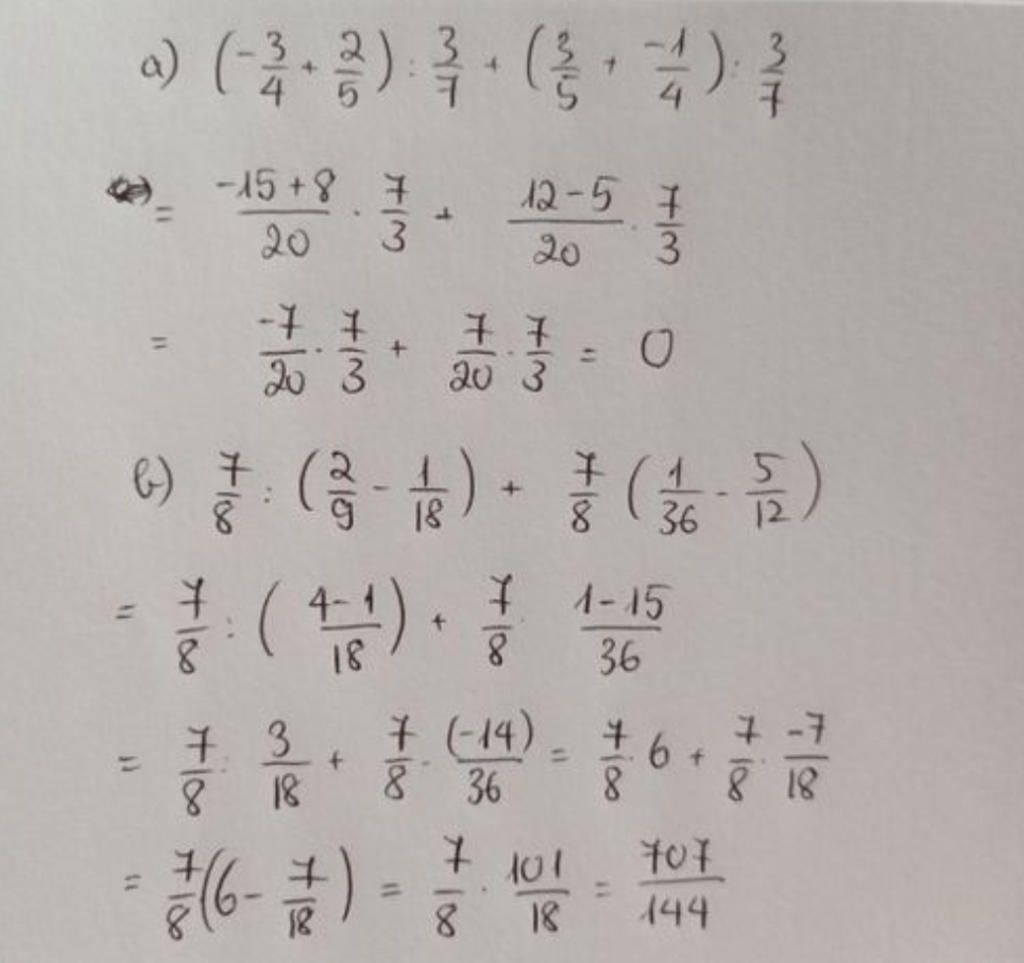 a) (-3/4 + 2/5) : 3/7 + (3/5 + -1/4) : 3/7
= -15+8/20 · 7/3 + 12-5/20 · 7/3
= -7/20 · 7/3 + 7/20 · 7/3 = 0
b) 7/8 : (2/9 - 1/18) + 7/8 (1/36 - 5/12)
= 7/8 : (4-1/18) + 7/8 1-15/36
= 7/8 : 3/18 + 7/8 · (-14)/36 = 7/8 · 6 + 7/8 · -7/18
= 7/8 (6 - 7/18) = 7/8 · 101/18 = 707/144